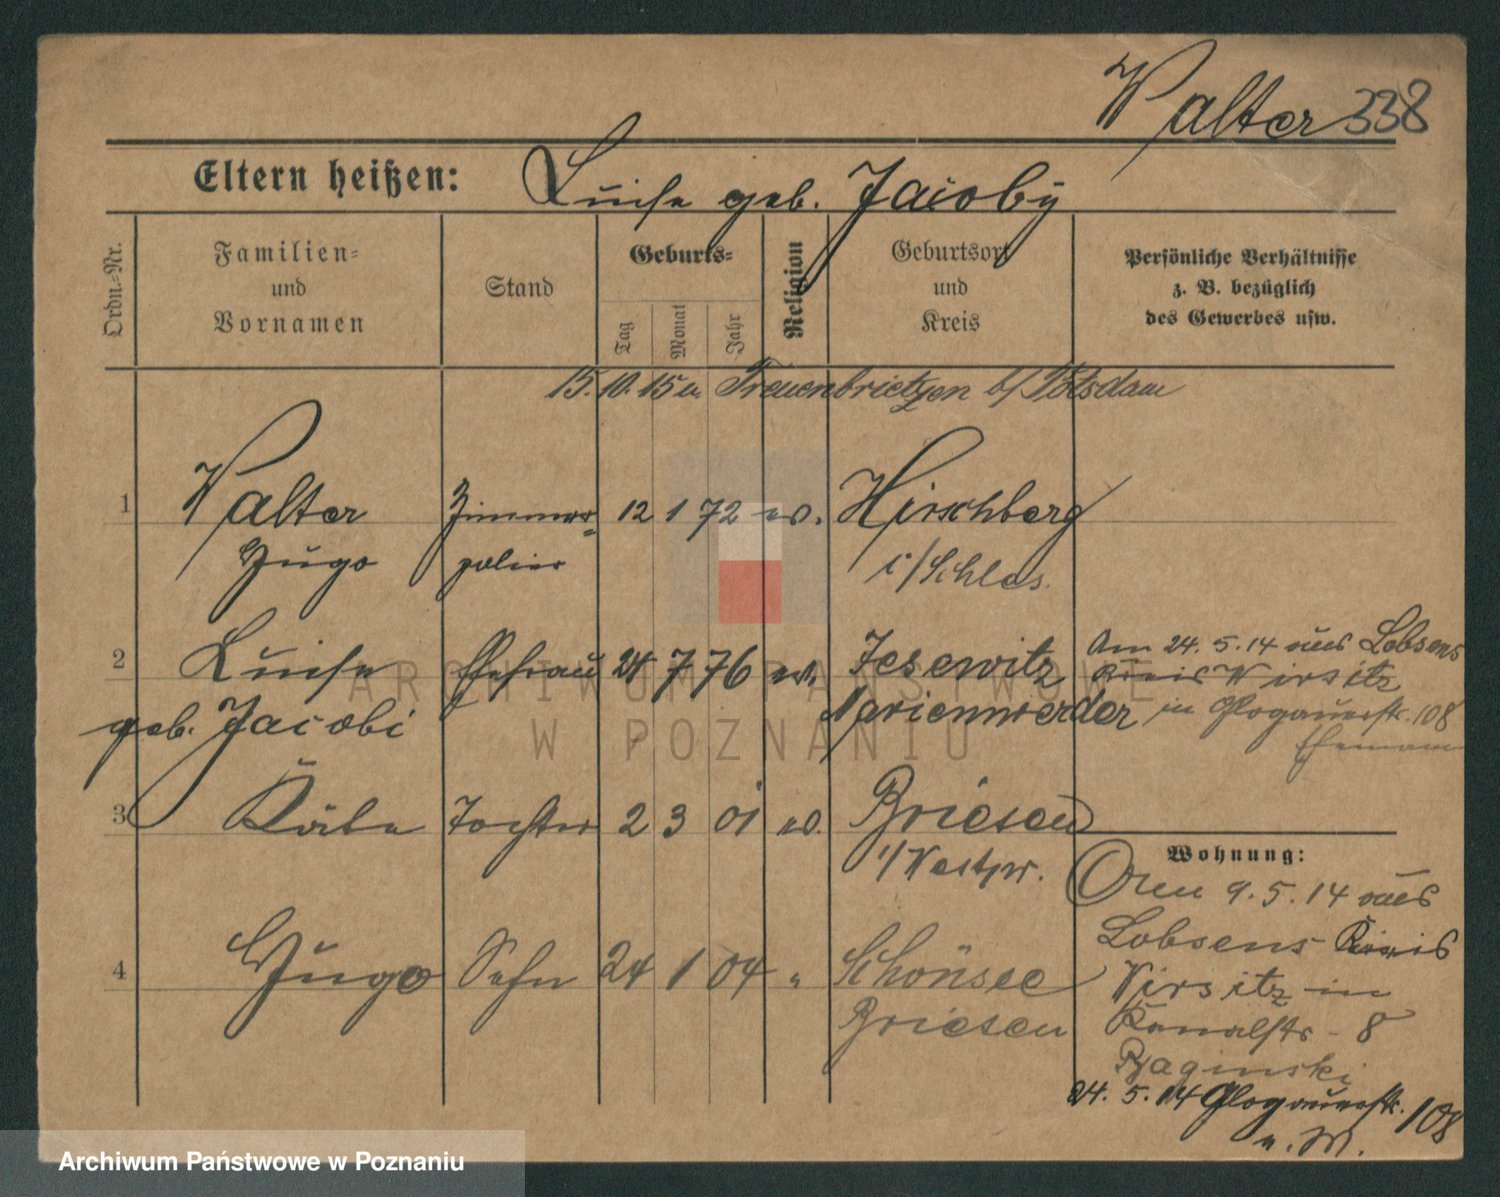 Walter 338
Eltern heißen: Luise geb. Jacoby
Ordn.-Nr.
Familien-
und
Vornamen
Stand
Geburts-
Tag
Monat
Jahr
Religion
Geburtsort
und
Kreis
Persönliche Verhältnisse
z. B. bezüglich
des Gewerbes usw.
15.10.15 n. Treuenbrietzen b/ Potsdam
1 Walter Zimmer- 12 1 72 ev. Hirschberg
Hugo polier i/Schles.
2 Luise Ehefrau 24 7 76 ev. Jesewitz
geb. Jacobi Marienwerder
Am 24.5.14 aus Lobsens
Kreis Wirsitz
in Glogauerstr. 108
Ehemann
3 Käte Tochter 2 3 01 ev. Briesen
i/Westpr.
4 Hugo Sohn 24 1 04 " Schönsee
Briesen
Wohnung:
9.5.14 aus
Lobsens Kreis
Wirsitz in
Kanalstr. 8
24.5.14 Glogauerstr. 108
ARCHIWUM PAŃSTWOWE
W POZNANIU
Archiwum Państwowe w Poznaniu